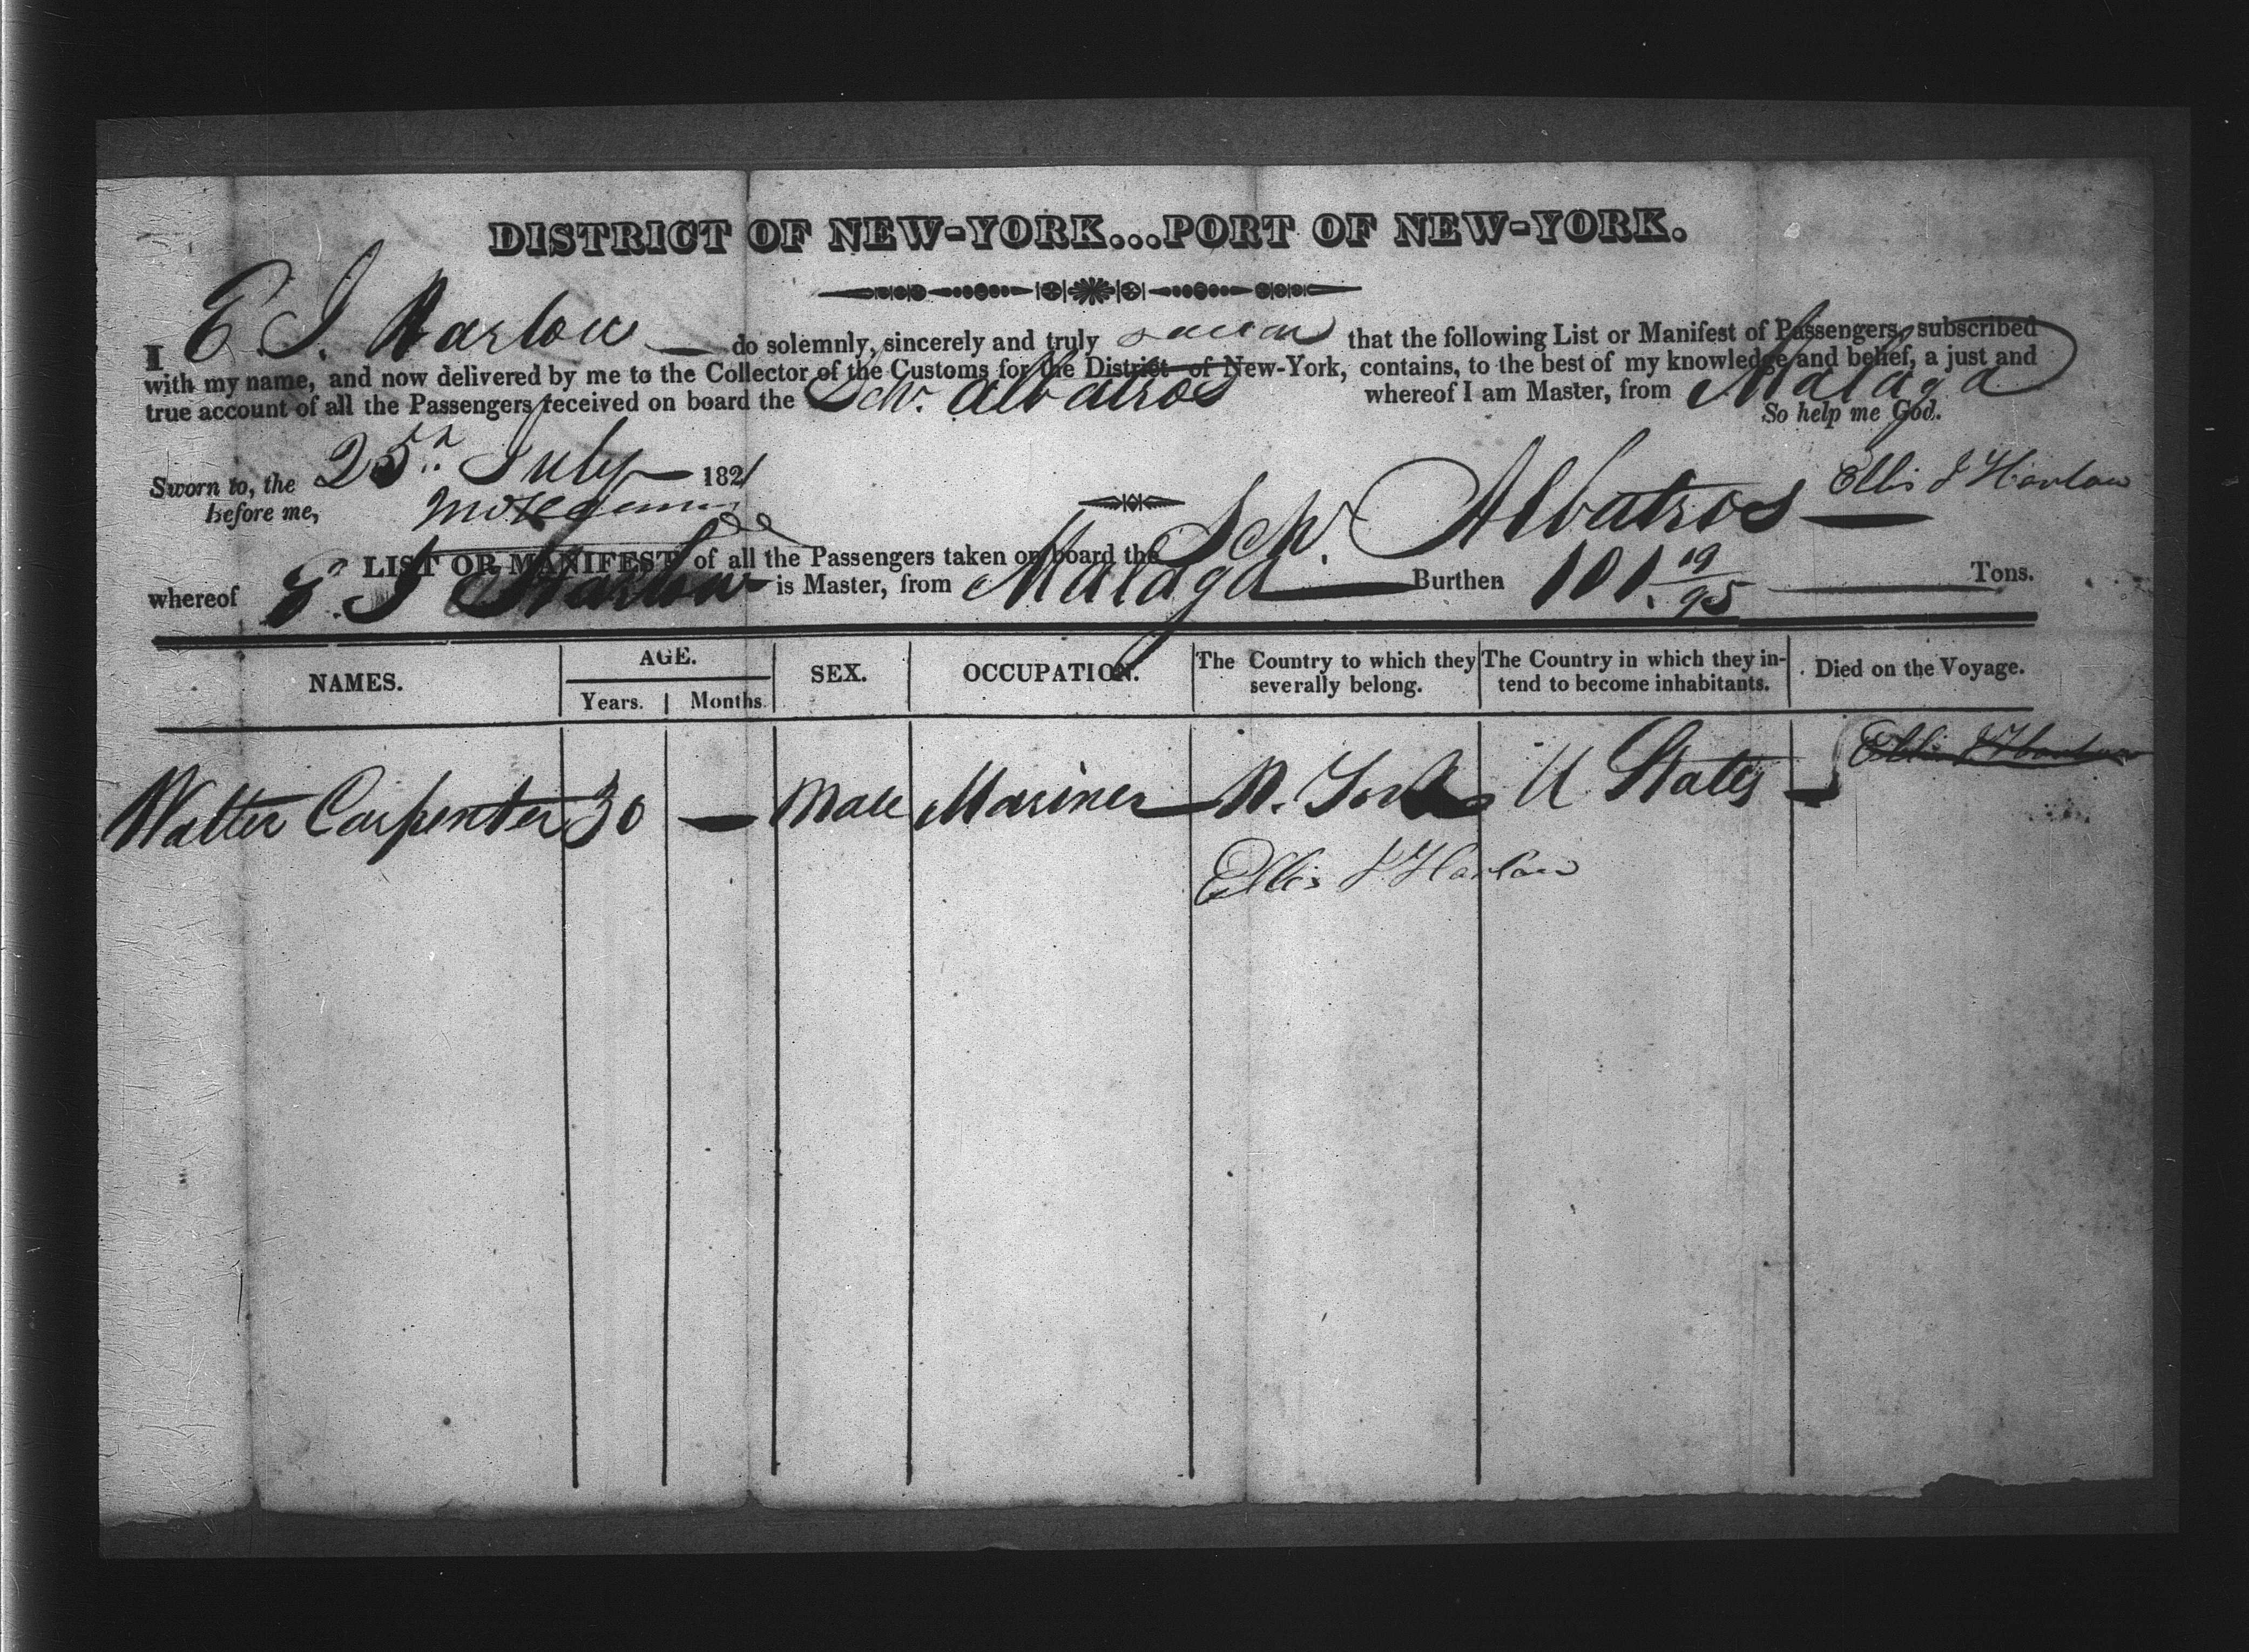 DISTRICT OF NEW-YORK...PORT OF NEW-YORK.
I E. J. Harlow — do solemnly, sincerely and truly swear that the following List or Manifest of Passengers, subscribed
with my name, and now delivered by me to the Collector of the Customs for the District of New-York, contains, to the best of my knowledge and belief, a just and
true account of all the Passengers received on board the Schr. Albatros whereof I am Master, from Malaga
So help me God.
Sworn to, the 25th July 1821
Ellis J Harlow
before me,
LIST OR MANIFEST of all the Passengers taken on board the Schr. Albatros —
whereof E J Harlow is Master, from Malaga — Burthen 101. 19/95 — Tons.
NAMES. AGE. SEX. OCCUPATION. The Country to which they severally belong. The Country in which they intend to become inhabitants. Died on the Voyage.
Years. Months.
Ellis J Harlow
Walter Carpenter 30 — Male Mariner — N. York U States —
Ellis J Harlow